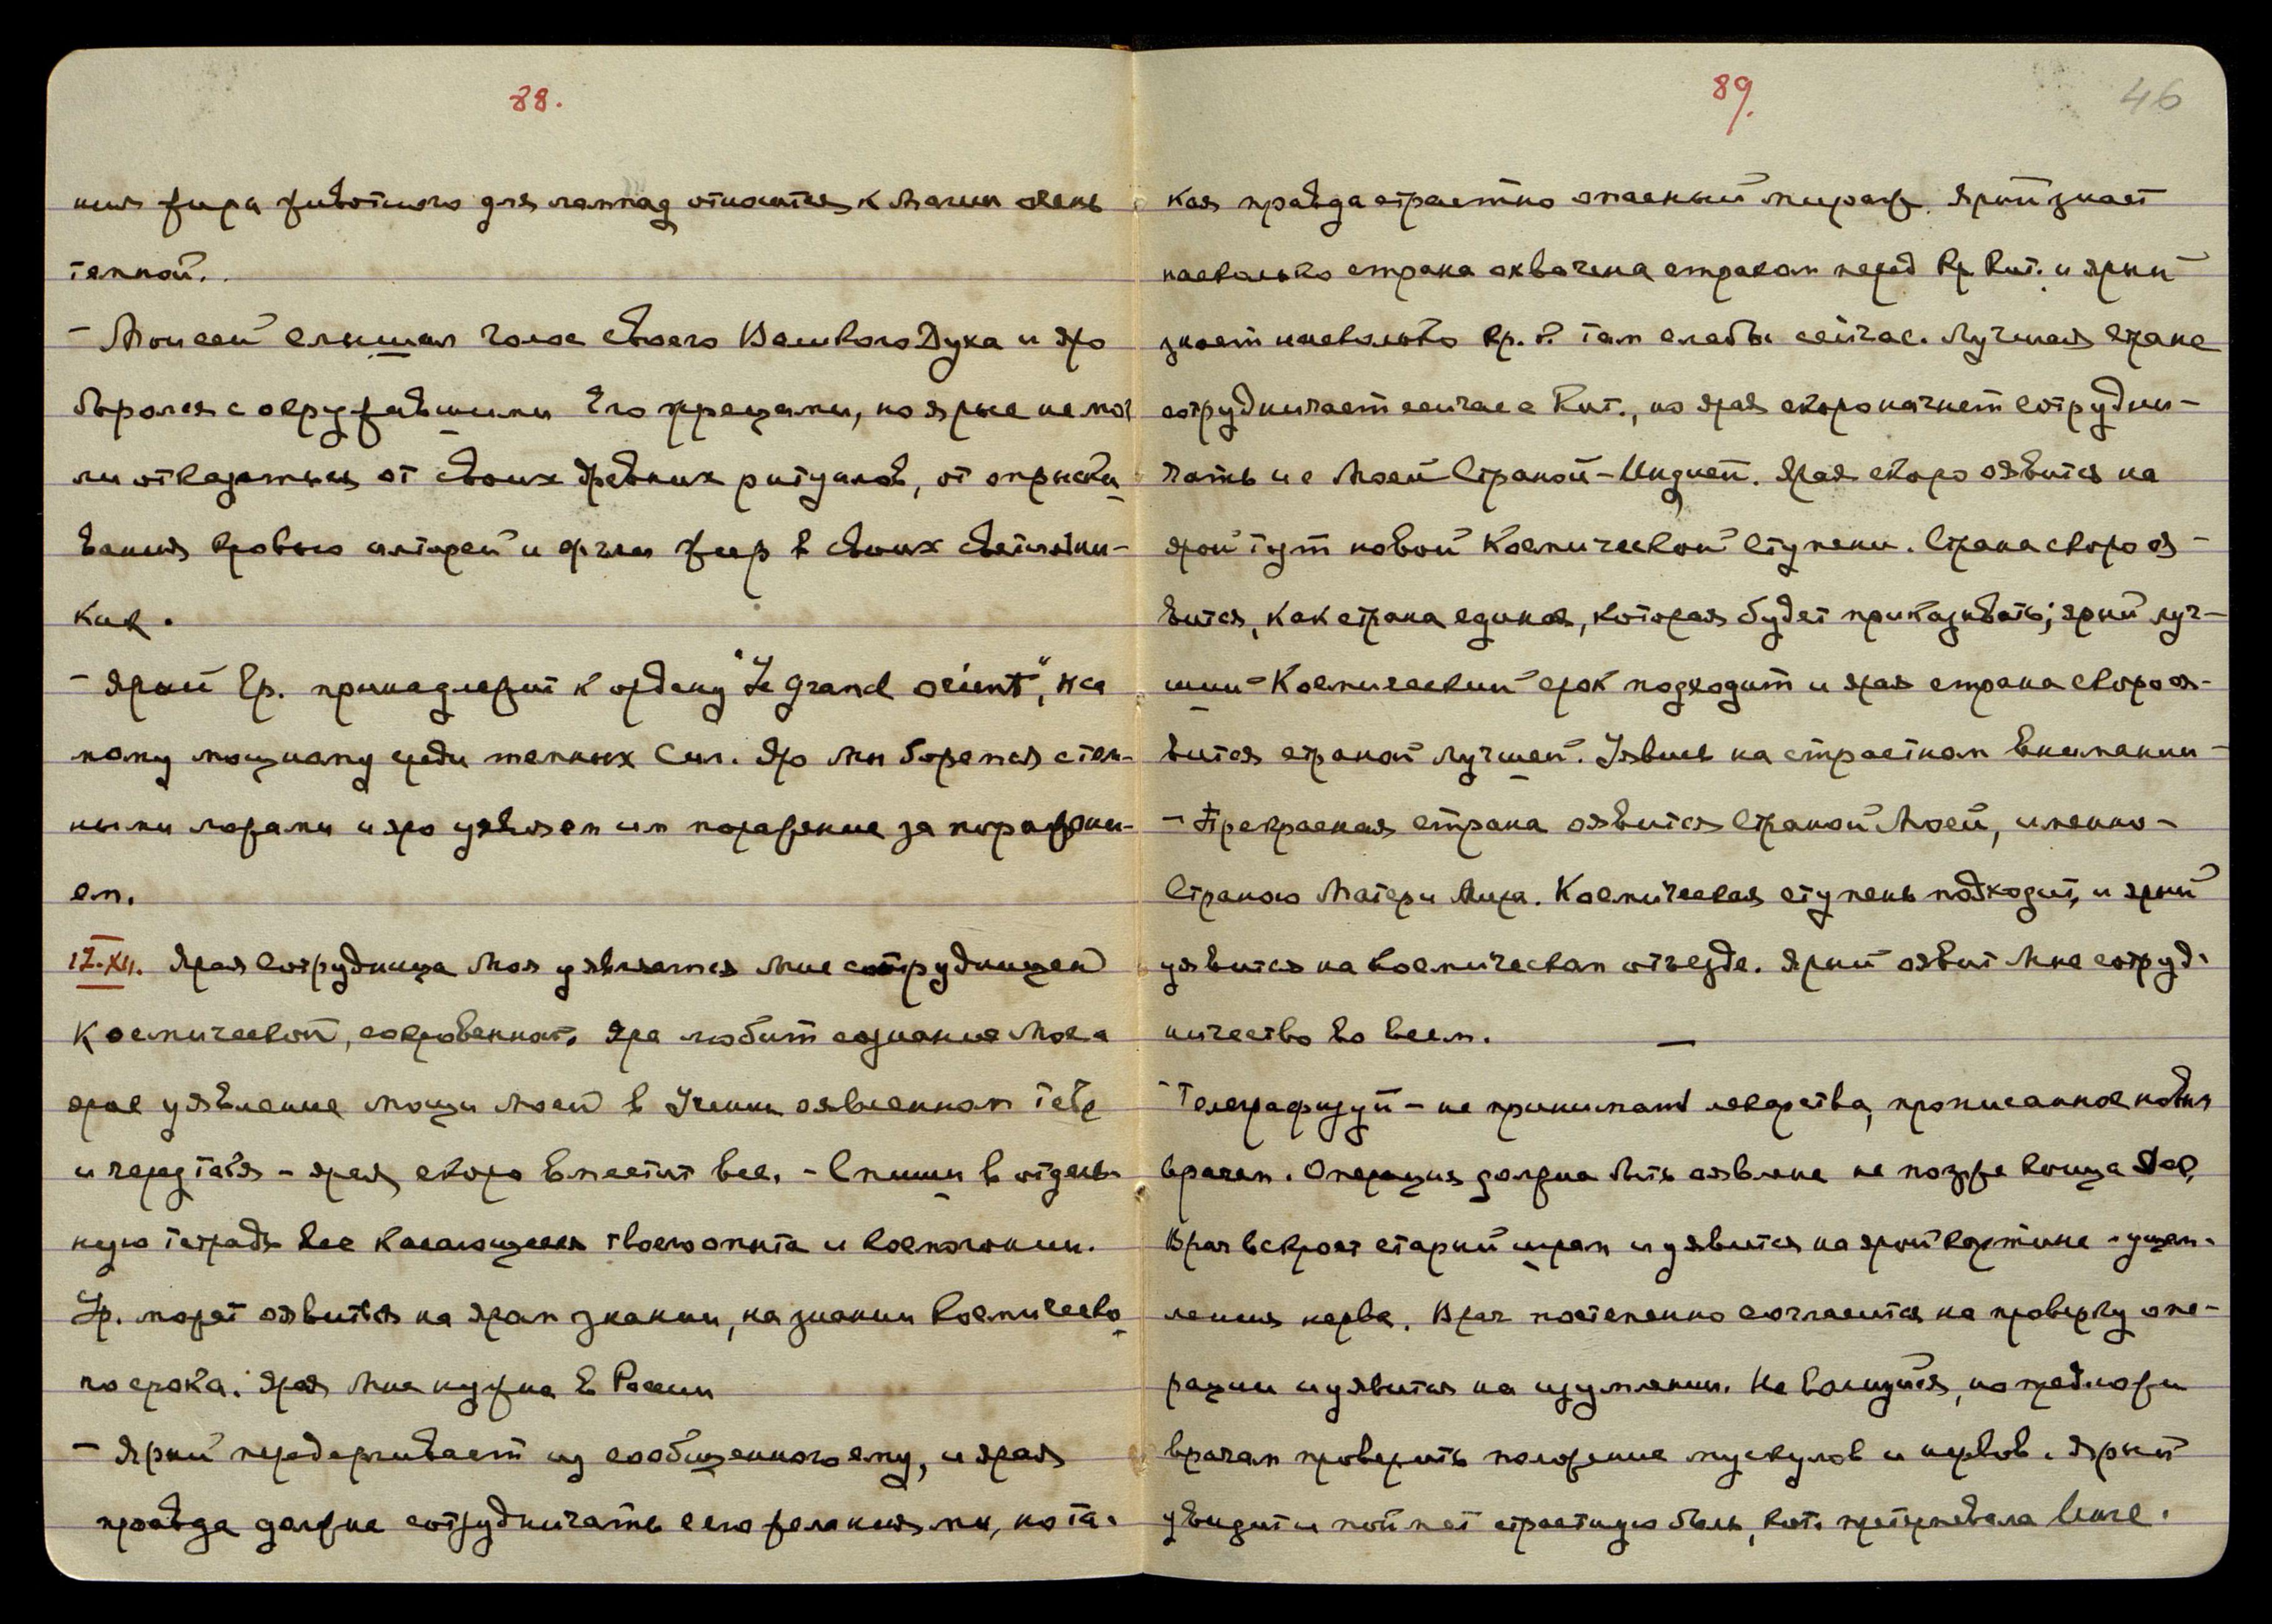 88.
ния жира животного для лампад относится к Магии очень
темной.
- Моисей слышал голос своего Великого Духа и яро
боролся с окружавшими Его жрецами, но ярые не мог
ли отказаться от своих древних ритуалов, от опрыски
вания кровью алтарей и жгли жир в своих светильни-
ках.
- Ярый Гр. принадлежит к ордену "Le Grand Orient", са
мому мощному среди темных Сил. Яро Мы боремся с тем-
ными ложами и яро уявляем им поражение за поражени-
ем.
17.XII. Ярая Сотрудница Моя уявляется Мне сотрудницей
Космической, сокровенной. Яро любит сознание Мое и
ярое уявление мощи Моей в Учении оявленном тебе
и через тебя - ярая скоро вместит все. - Спиши в отдель-
ную тетрадь все касающееся твоего опыта и космогонии.
Ур. может оявиться на яром знании, на знании Космическо
го срока. Ярая Мне нужна в России
- Ярый передергивает из сообщенного ему, и ярая
правда должна сотрудничать с его желаниями, но та-
89.
46
кая правда страстно опасный мираж. Ярый знает
насколько страна охвачена страхом перед Кр. Кит. и ярый
знает насколько Кр. К. там слабы сейчас. Лучшая страна
сотрудничает сейчас с Кит., но ярая скоро начнет сотрудни-
чать и с Моей Страной - Индией. Ярая скоро оявится на
ярой тут новой Космической Ступени. Страна скоро оя-
вится, как страна единая, которая будет приказывать; ярый луч-
ший Космический срок подходит и ярая страна скоро оя-
вится страной лучшей. Уявись на страстном внимании -
- Прекрасная страна оявится Страной Моей, именно -
Страною Матери Мира. Космическая ступень подходит, и ярый
уявится на Космическом отъезде. Ярый оявит Мне сотруд-
ничество во всем.
- Телеграфируй - не принимать лекарства, прописанное новым
врачем. Операция должна быть оявлена не позже конца Дек.
Врач вскроет старый шрам и уявится на ярой картине - ущем-
ления нерва. Врач постепенно согласится на проверку опе-
рации и уявится на изумлении. Не волнуйся, но предложи
врачам проверить положение мускулов и нервов. Ярый
увидит и поймет страстную боль, кот. претерпевала